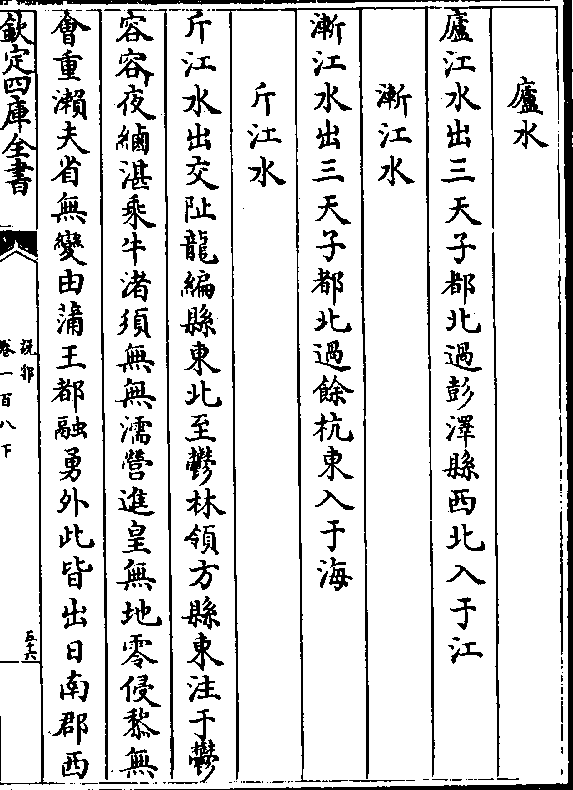 廬水
廬江水出三天子都北過彭澤縣西北入于江
漸江水
漸江水出三天子都北過餘杭東入于海
斤江水
斤江水出交阯龍編縣東北至鬱林領方縣東注于鬱
容容夜緬湛乘牛渚須無無濡營進皇無地零侵黎無
會重瀨夫省無變由蒲王都融勇外此皆出日南郡西
欽定四庫全書
說郛
卷一百八下
五十六